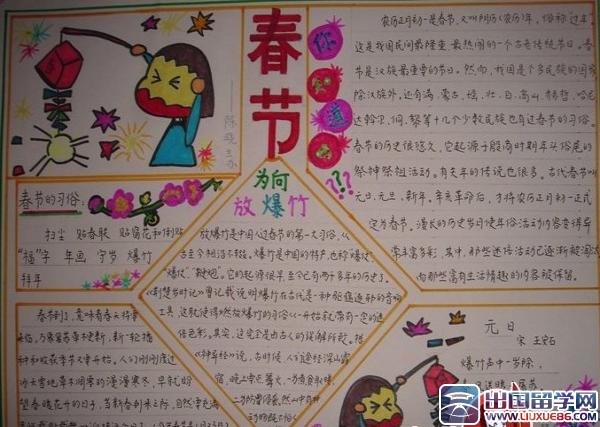 春节
你知道吗
???
农历正月初一是春节，又叫阴历(农历)年，俗称"过年"。
这是我国民间最隆重、最热闹的一个古老传统节日。春
节是汉族最重要的节日。然而，我国是个多民族的国家
除汉族外，还有满、蒙古、瑶、壮、白、高山、赫哲、哈尼
达斡尔、侗、黎等十几个少数民族也有过春节的习俗。
春节的历史很悠久，它起源于殷商时期年头岁尾的
祭神祭祖活动。有关年的传说也很多。古代春节叫
元日、元旦、新年。辛亥革命后，才将农历正月初一正式
定为春节。漫长的历史岁月使年俗活动内容变得异
常丰富多彩，其中，那些迷信活动已逐渐被淘汰
而那些富有生活情趣的内容被保留。
春节的习俗：
扫尘 贴春联 贴窗花和倒贴
"福"字 年画 守岁 爆竹
拜年
为何
放爆竹
放爆竹是中国人过春节的第一大习俗，从
古至今相沿不辍。爆竹是中国的特产，也称"爆仗"、
"炮仗"、"鞭炮"。它的起源很早，至今已有两千多年的历史了。
《荆楚岁时记》曾记载说明爆竹在古代是一种驱瘟逐邪的音响
工具，这就使得燃放爆竹的习俗从一开始就带有一定的迷
信色彩。其实，这完全是由古人的误解所致。据
《神异经》说，古时候，人们途经深山露
宿，晚上要点篝火，一为煮食取暖，
二为防野兽侵袭。然山中有种
动物既
春节到了，意味着春天将要
来临，万象复苏草木更新，新一轮播
种和收获季节又要开始。人们刚刚度过
冰天雪地草木凋零的漫漫寒冬，早就盼
望春暖花开的日子，当新春到来之际，自然要充满
元日
宋 王安石
爆竹声中一岁除，
出国留学网
WWW.LIUXUE86.COM